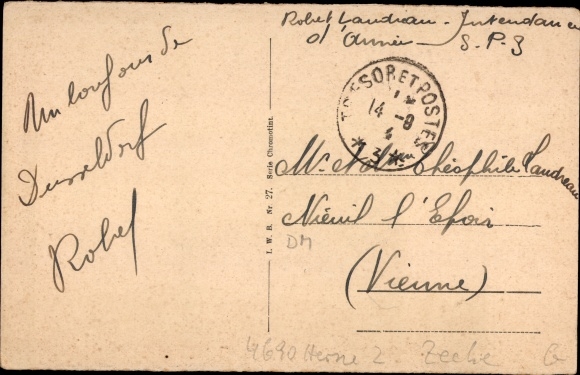 Robert Landreau - Intendance
d'Armée - S.P.3
Un bonjour de
Dusseldorf
Robert
TRESOR ET POSTES
14 - 8
* 3 *
Mr & Mme Théophile Landreau
Nieuil l'Espoir
(Vienne)
I. W. B. Nr. 27. Serie Chromotint.
DM
4690 Herne 2. Zeche